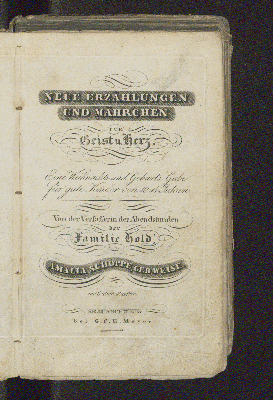 NEUE ERZÄHLUNGEN
UND MÄHRCHEN
FÜR
Geist u. Herz.
Eine Weihnachts und Geburts Gabe
für gute Kinder von
Von der Verfasserin der Abendstunden
der
Familie Hold,
AMALIA SCHOPPE, GEB. WEISE.
bei G. C. E. Meyer